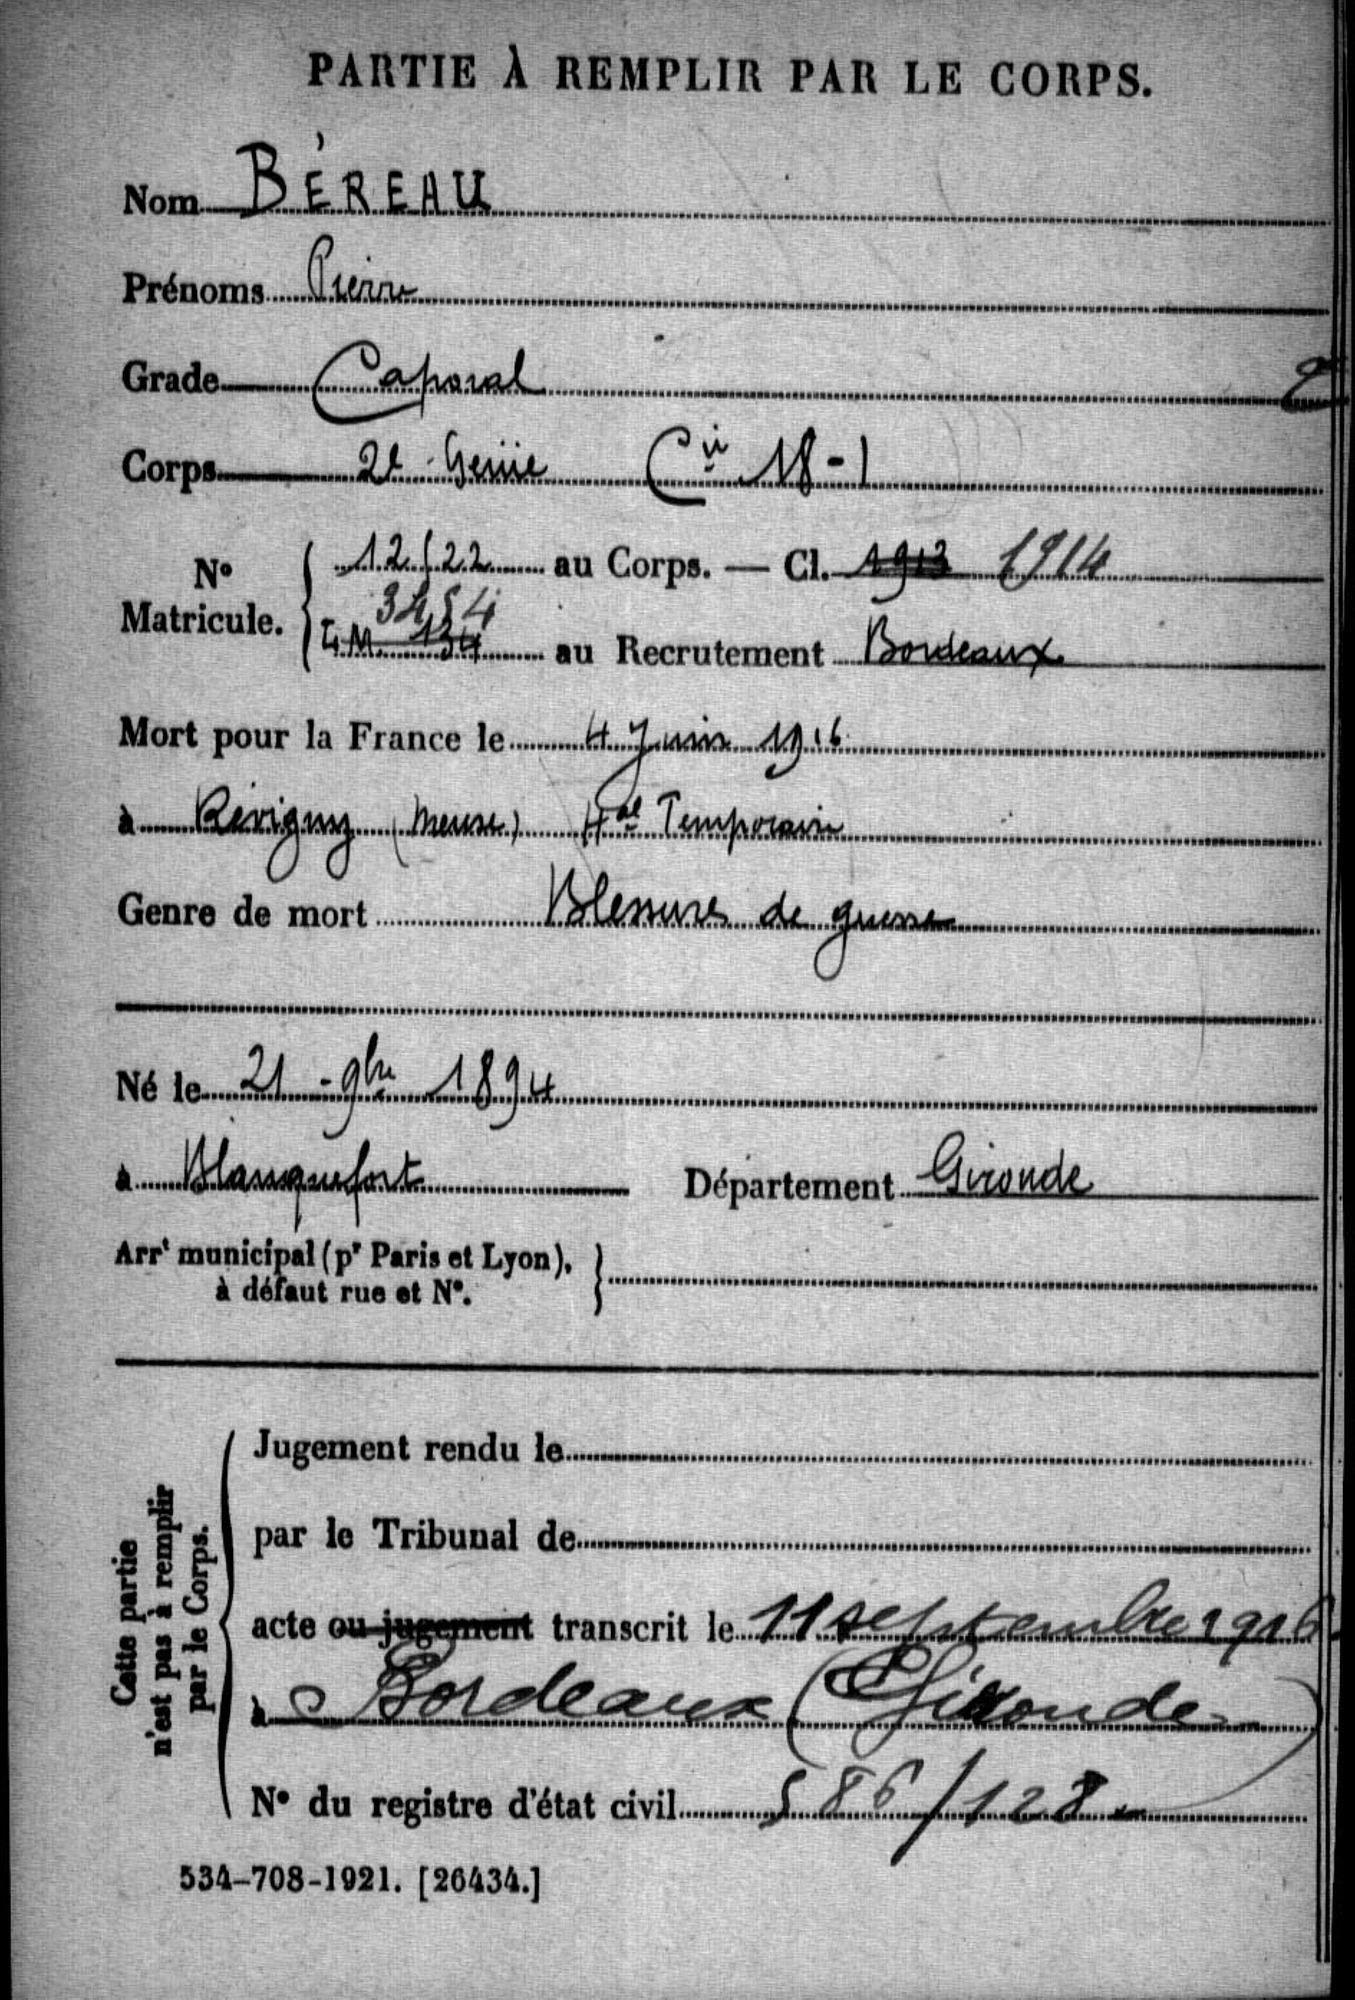 PARTIE À REMPLIR PAR LE CORPS.
Nom BÉREAU
Prénoms Pierre
Grade Caporal
Corps 2e Génie Cie 18-1
No Matricule. 12122 au Corps. — Cl. 1913 1914
3454
E.M. 134 au Recrutement Bordeaux
Mort pour la France le 4 Juin 1916
à Révigny (Meuse) Hal Temporaire
Genre de mort Blessures de guerre
Né le 21 - 9bre 1894
à Blanquefort Département Gironde
Arrt municipal (pr Paris et Lyon),
à défaut rue et No.
Cette partie
n'est pas à remplir
par le Corps.
Jugement rendu le
par le Tribunal de
acte ou jugement transcrit le 11 septembre 1916
à Bordeaux (Gironde)
No du registre d'état civil 586/128
534-708-1921. [26434.]